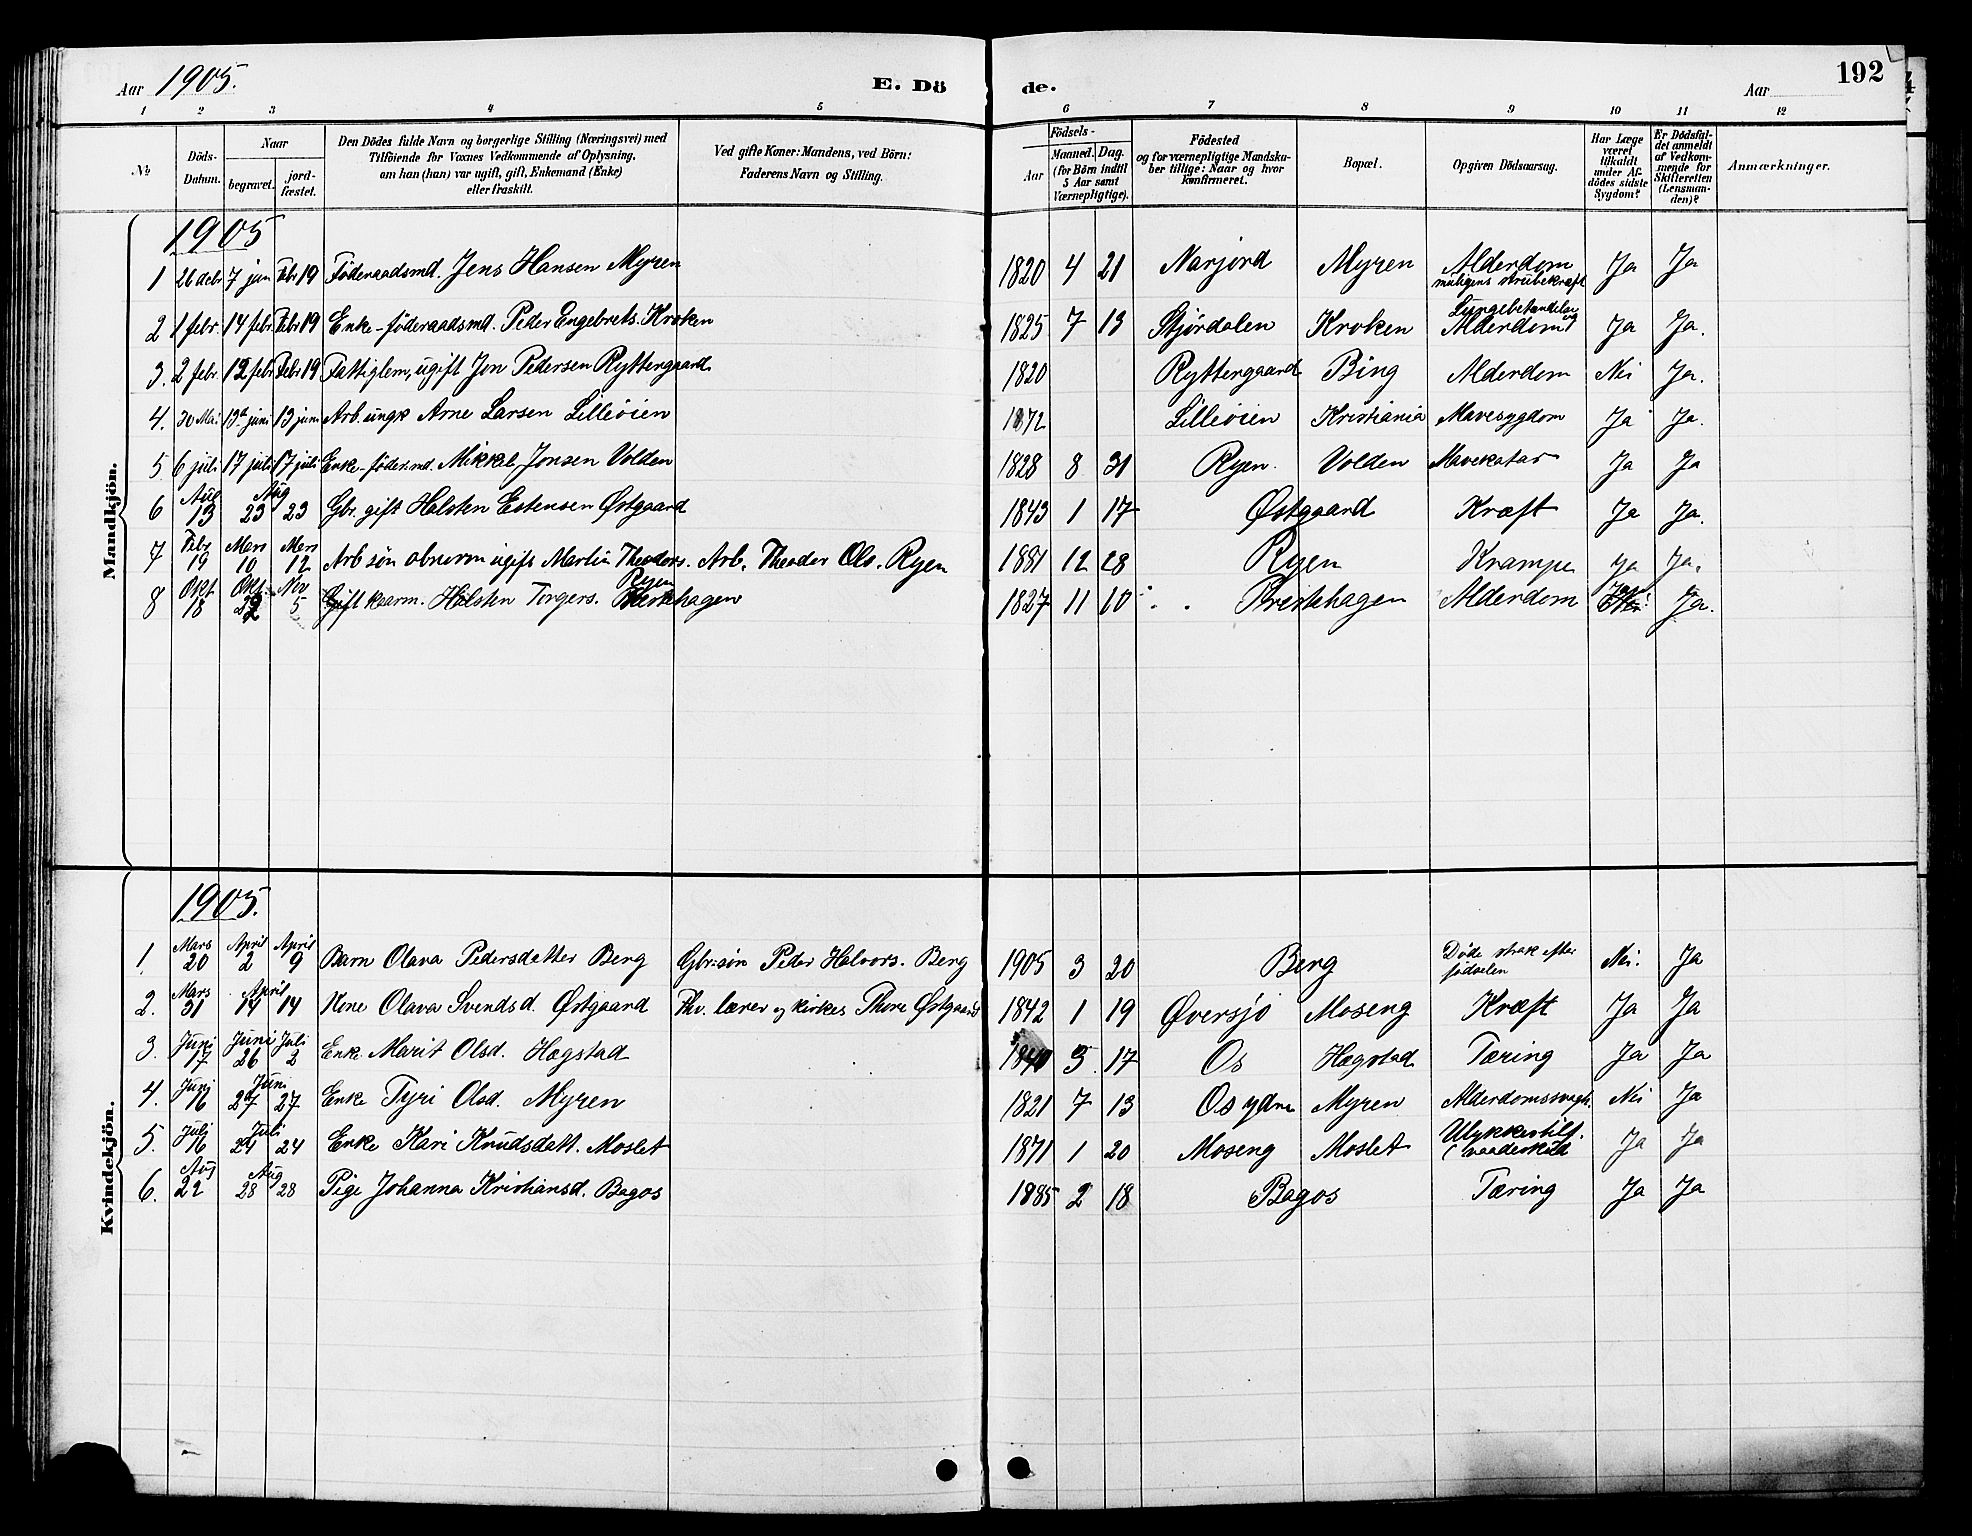 Aar 1905.
E. Dö
de.
Aar
192
1 2 3 4 5 6 7 8 9 10 11 12
№
Döds-Datum.
Naar
begravet.
jord-fæstet.
Den Dödes fulde Navn og borgerlige Stilling (Næringsvei) med
Tilföiende for Voxnes Vedkommende af Oplysning,
om han (hun) var ugift, gift, Enkemand (Enke)
eller fraskilt.
Ved gifte Koner: Mandens, ved Börn:
Faderens Navn og Stilling.
Födsels-
Aar
Maaned. Dag.
(for Börn indtil
5 Aar samt
Værnepligtige).
Födested
og for værnepligtige Mandska-
ber tillige: Naar og hvor
konfirmeret.
Bopæl.
Opgiven Dödsaarsag.
Har Læge
været
tilkaldt
under Af-
dödes sidste
Sygdom?
Er Dödsfal-
det anmeldt
af Vedkom-
mende for
Skifteretten
(Lensman-
den)?
Anmærkninger.
Mandkjön.
1905
1 26 decbr 7 jan Febr 19 Føderaadsmd. Jens Hansen Myren 1820 4 21 Narjord Myren Alderdom muligens strubekræft Ja Ja
2 1 febr. 14 febr Febr 19 Enke-føderaadsmd. Peder Engebrets. Kroken 1825 7 13 Stjørdalen Kroken Alderdom Ja Ja.
3. 2 febr. 12 febr Febr 19 Fattiglem, ugift Jon Pedersen Ryttergaard 1820 Ryttergaard Bing Alderdom Nei Ja.
4. 30 Mai 13de juni 13 juni Arb. ungk Arne Larsen Lilleøien 1872 Lilleøien Kristiania Mavesygdom Ja Ja.
5 6 juli 17 juli 17 juli Enke-føder.md. Mikkel Jonsen Volden 1828 8 31 Ryen. Volden Mavekatar Ja Ja
6 Aug 13 Aug 23 23 Gbr. gift Halsten Estensen Østgaard 1843 1 17 Østgaard Kræft Ja Ja.
7 Febr 19 Mars 10 Mars 12 Arb. søn abnorm ugift Martin Theodors. Arb. Theodor Ols. Ryen 1881 12 28 Ryen Krampe Ja Ja.
8 Okt 18 Okt. 22 Nov 5 Gift kaarm. Halsten Torgers. Ryen Prestehagen 1827 11 10 Prestehagen Alderdom Ja! Ja.
Kvindekjön.
1905.
1. Mars 20 April 2 April 9 Barn Olava Pedersdatter Berg Gbr:søn Peder Halvors. Berg 1905 3 20 Berg Døde strak efter fødselen Nei. Ja
2. Mars 31 April 14 14 Kone Olava Svendsd. Østgaard Fhv. lærer og kirkes Thore Østgaard 1842 1 19 Øversjø Moseng Kræft Ja Ja
3. Juni 17 Juni 26 Juli 2 Enk. Marit Olsd. Hægstad 1840 5 17 Os Hægstad Tæring Ja Ja
4. Juni 16 Juni 27 27 Enke Tyri Olsd. Myren 1821 7 13 Os ydre Myren Alderdomssvagh. Nei Ja
5. Juli 16 Juli 24 24 Enke Kari Knudsdatt. Moslet 1871 1 20 Moseng Moslet Ulykkestilf. Ja Ja
6. Aug 22 Aug 28 28 Pige Johanna Kristiansd. Bagos 1885 2 18 Bagos Tæring Ja Ja